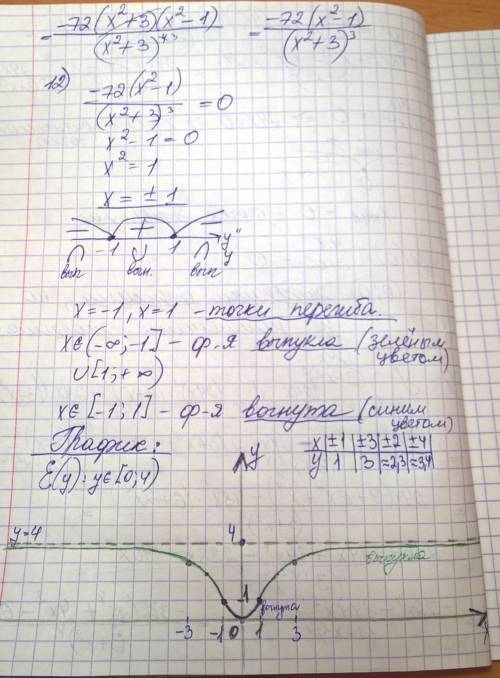 = -72(x²+3)(x²-1) / (x²+3)⁴·³ = -72(x²-1) / (x²+3)³
12) -72(x²-1) / (x²+3)³ = 0
x²-1=0
x²=1
x=±1
− + − y"
-1 1 y
вып вогн. вып
x=-1, x=1 - точки перегиба.
x∈(-∞;-1] - ф-я выпукла (зелёным цветом)
∪[1;+∞)
x∈[-1;1] - ф-я вогнута (синим цветом)
График:
x | ±1 | ±3 | ±2 | ±4
y | 1 | 3 | ≈2,3 | ≈3,4
E(y): y∈[0;4)
y
y=4 4
выпукла
1 вогнута
-3 -1 0 1 3